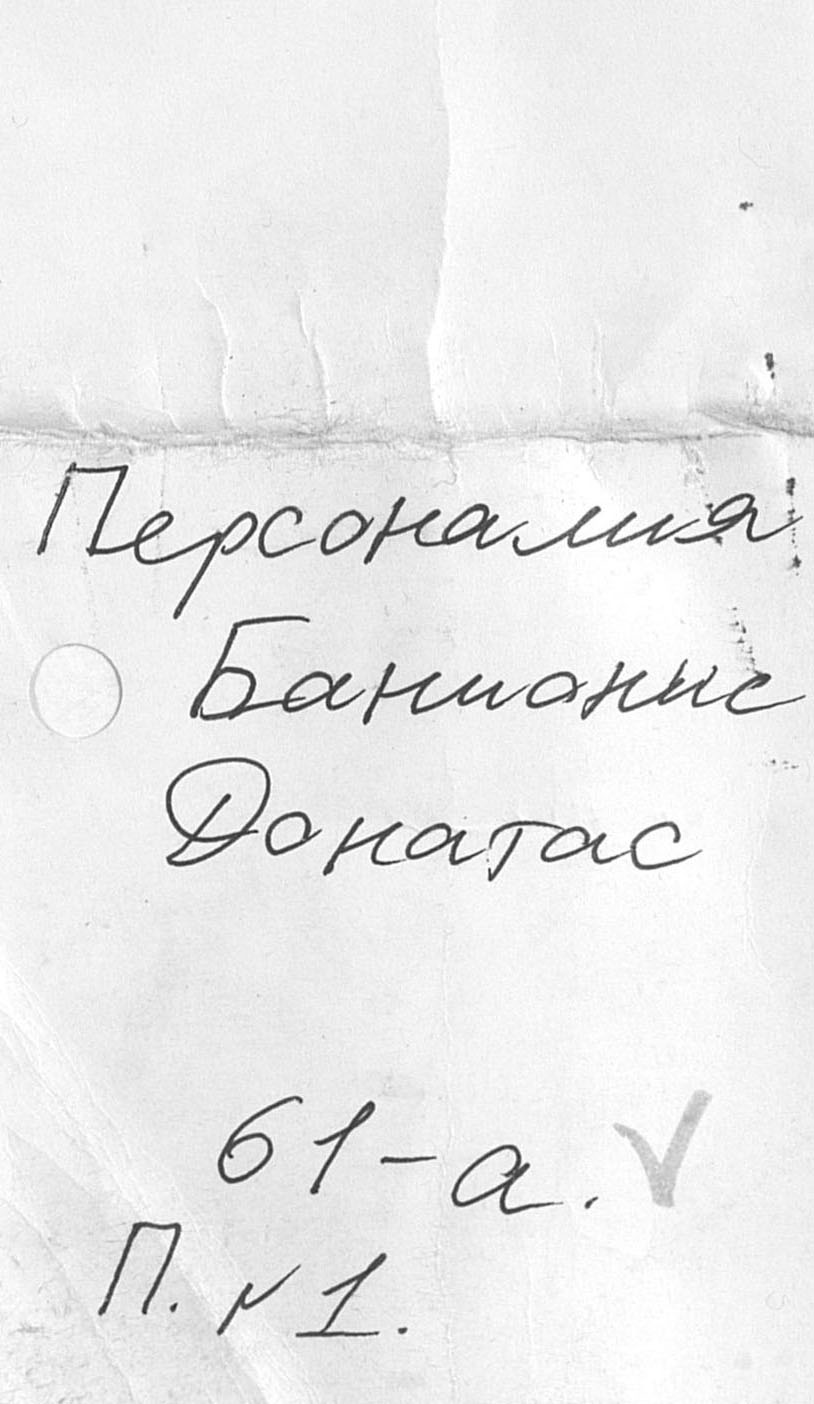 Персоналия
Банионис
Донатас
61-а.
П. N 1.